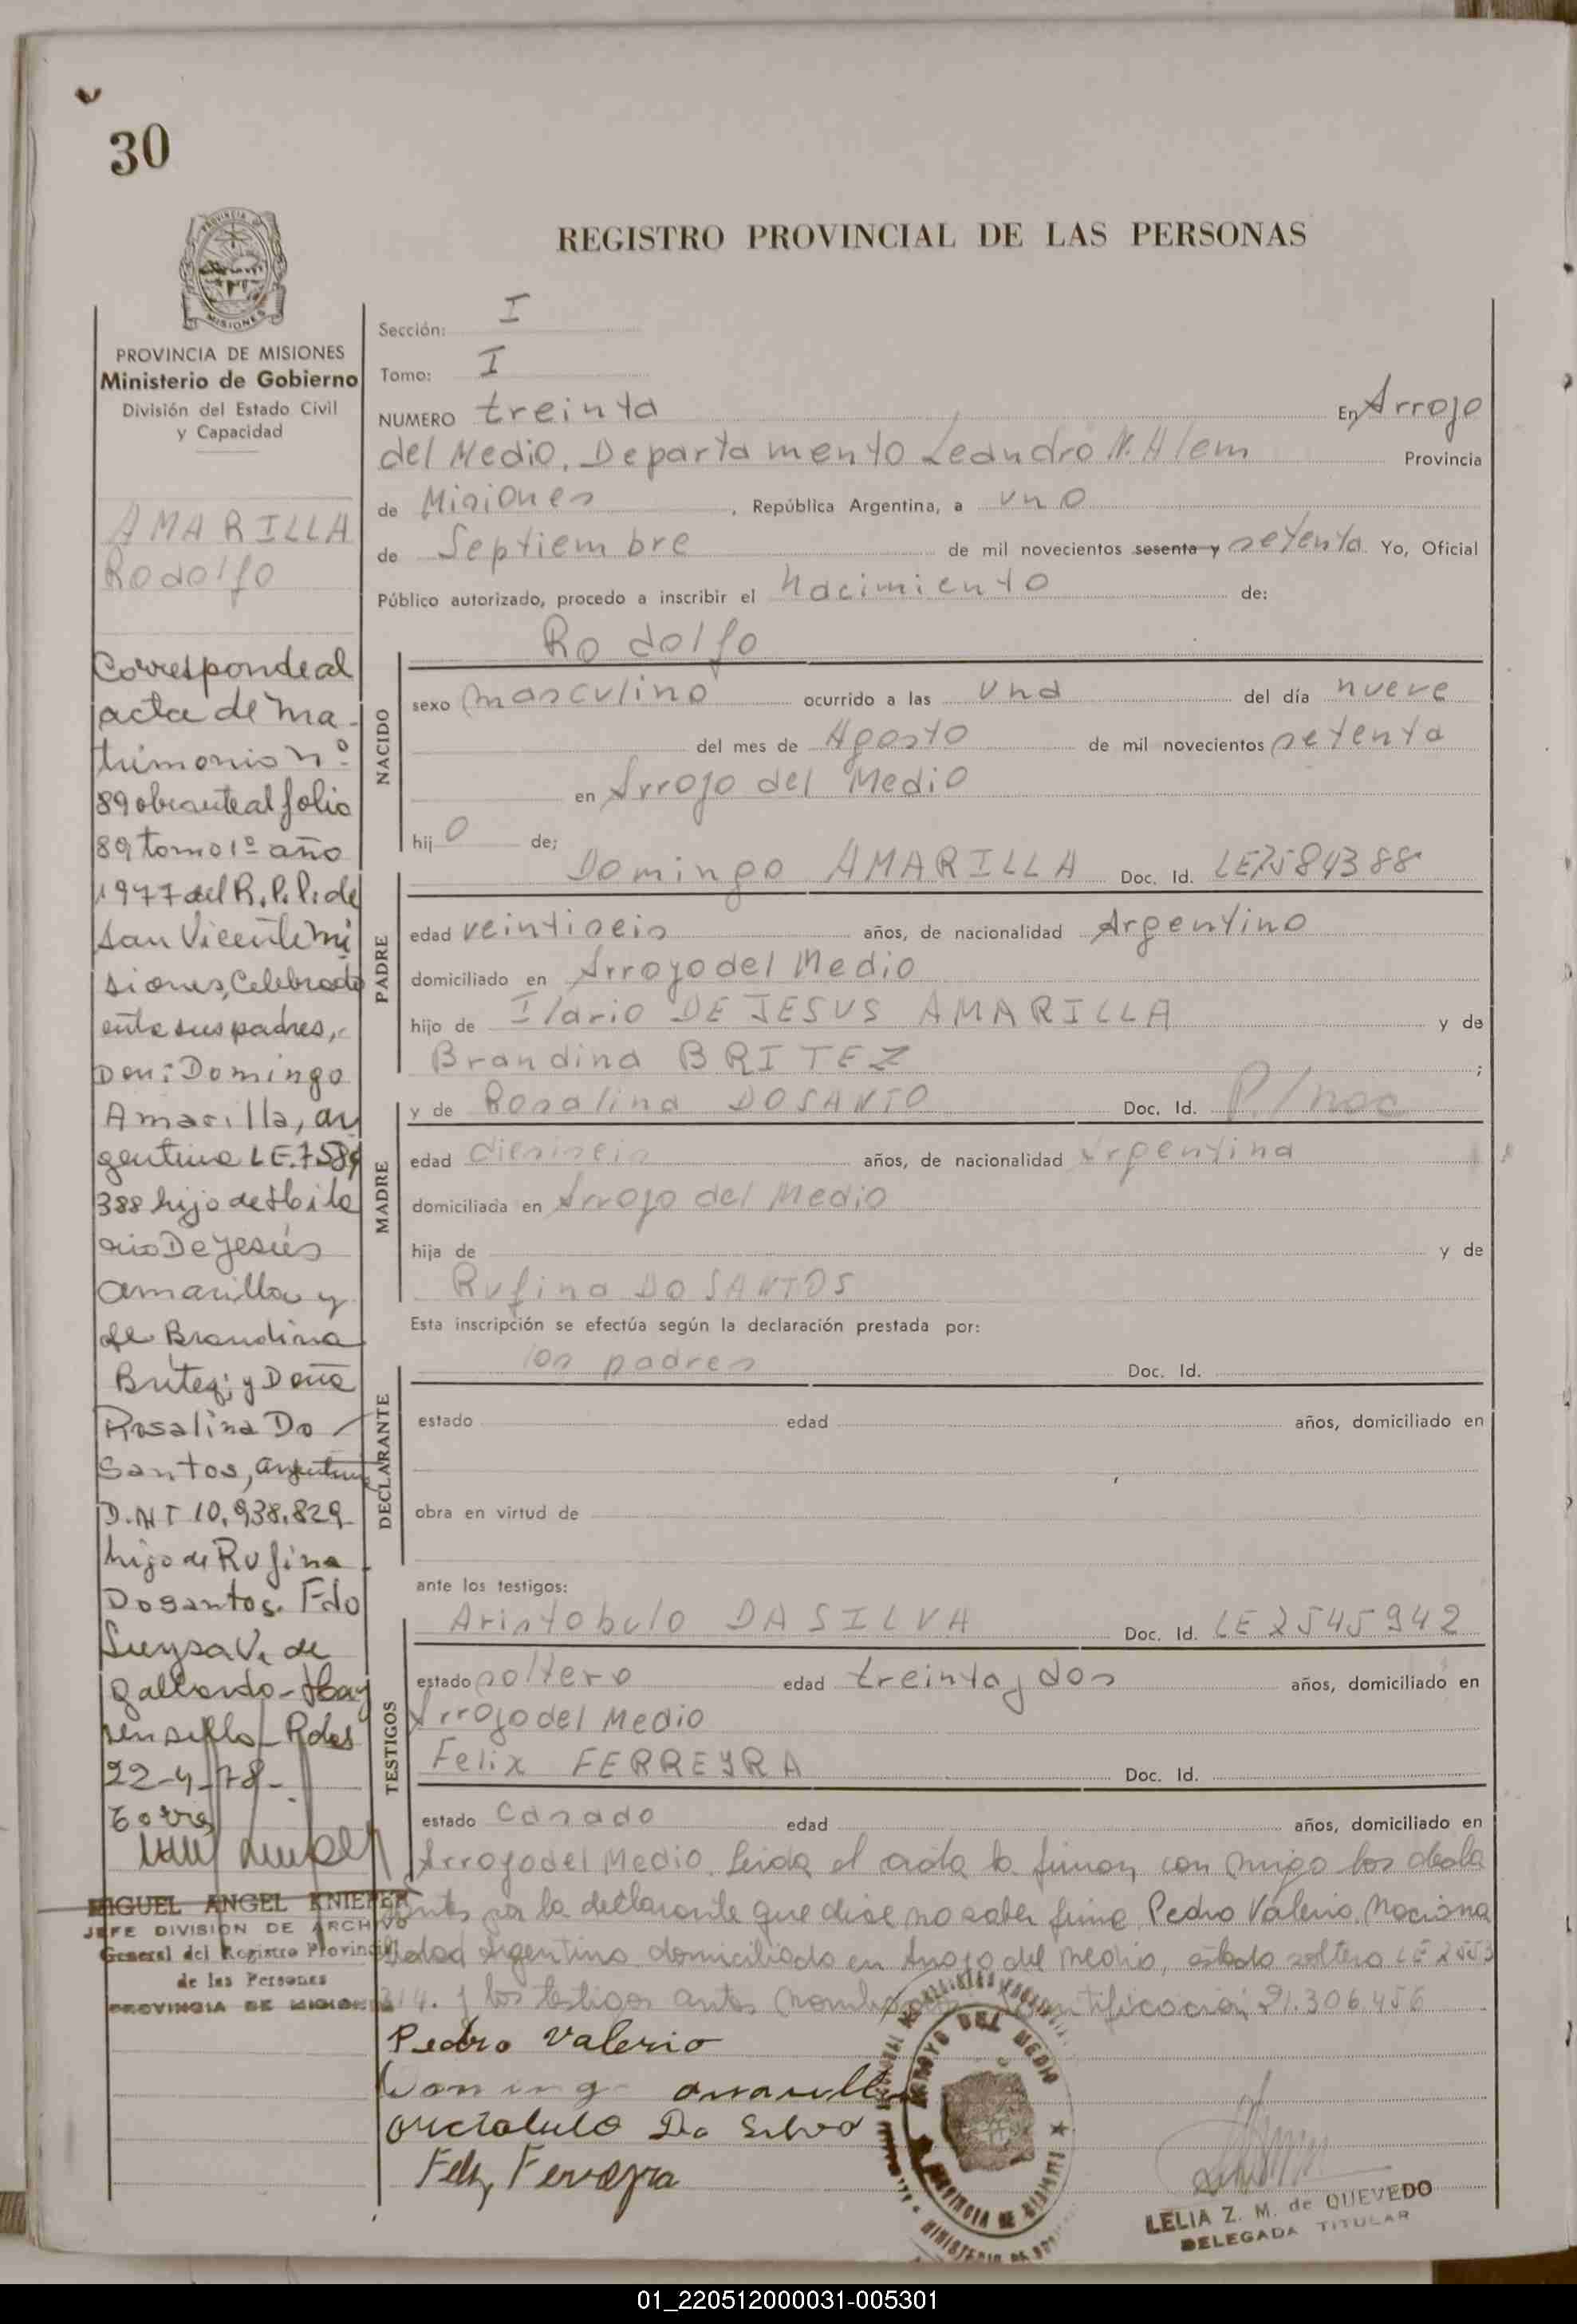 30
REGISTRO PROVINCIAL DE LAS PERSONAS
PROVINCIA DE MISIONES
Ministerio de Gobierno
División del Estado Civil
y Capacidad
AMARILLA
Rodolfo
Corresponde al
acta de ma-
trimonio nº
89 obrante al folio
89 tomo 1º año
1977 del R.P.P. de
San Vicente Mi
siones, Celebrado
ente sus padres,
Don: Domingo
Amarilla, ar
gentino LE. 7584
388 hijo de Hila
rio De Jesús
Amarilla y
de Brandina
Britez; y Doña
Rosalina Do
Santos, argentina
D.NI 10.938.829
hija de Rufina
Dosantos. Fdo
V. de
Gallardo - Hay
un sello - Pdas
22-4-78-
MIGUEL ANGEL KNIEPER
JEFE DIVISION DE ARCHIVO
General del Registro Provincial
de las Personas
PROVINCIA DE MISIONES
Sección: I
Tomo: I
NUMERO treinta En Arroyo
del Medio, Departamento Leandro N. Alem Provincia
de Misiones, República Argentina, a uno
de Septiembre de mil novecientos sesenta y setenta Yo, Oficial
Público autorizado, procedo a inscribir el Nacimiento de:
Rodolfo
NACIDO
sexo masculino ocurrido a las una del día nueve
del mes de Agosto de mil novecientos setenta
en Arroyo del Medio
hijo de;
Domingo AMARILLA Doc. Id. LE7584388
PADRE
edad veintiseis años, de nacionalidad Argentino
domiciliado en Arroyo del Medio
hijo de Ilario DE JESUS AMARILLA y de
Brandina BRITEZ ;
y de Rosalina DOSANTO Doc. Id.
MADRE
edad dieciseis años, de nacionalidad Argentina
domiciliada en Arroyo del Medio
hija de y de
Rufina DO SANTOS
Esta inscripción se efectúa según la declaración prestada por:
los padres Doc. Id.
DECLARANTE
estado edad años, domiciliado en
obra en virtud de
ante los testigos:
Aristobulo DA SILVA Doc. Id. LE 2545942
TESTIGOS
estado soltero edad treinta y dos años, domiciliado en
Arroyo del Medio
Felix FERREYRA Doc. Id.
estado Casado edad años, domiciliado en
Arroyo del Medio. Leida el acta la firman con migo los decla
rantes por la declarante que dice no saber firma Pedro Valerio. Naciona
lidad Argentino domiciliado en Arroyo del Medio, estado soltero LE 2553
314. y los testigos antes 21.306.456
Pedro Valerio
Doming amarilla
Da Silva
Felix Ferreyra
ARROYO DEL MEDIO
PROVINCIA DE MISIONES
LELIA Z. M. de QUEVEDO
DELEGADA TITULAR
01_220512000031-005301